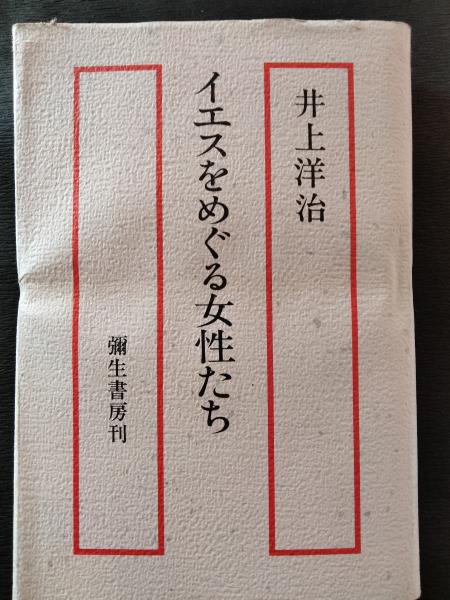 井上洋治
イエスをめぐる女性たち
彌生書房刊